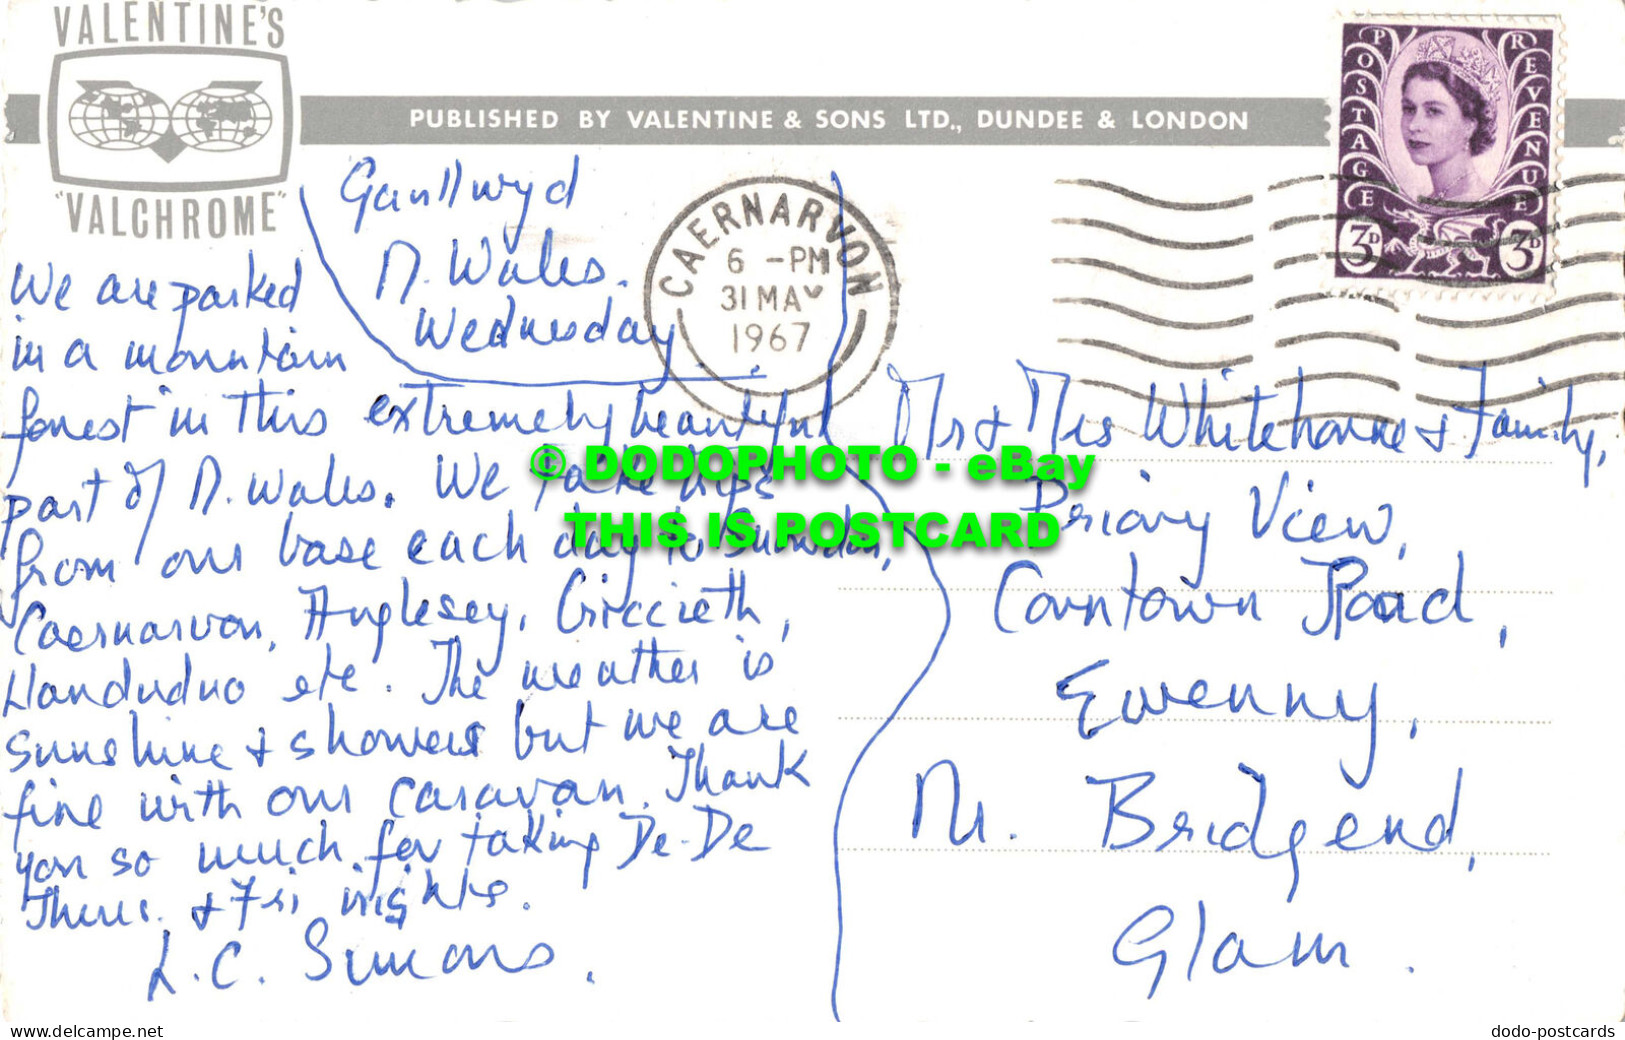 VALENTINE'S
"VALCHROME"
PUBLISHED BY VALENTINE & SONS LTD., DUNDEE & LONDON
POSTAGE REVENUE
3D 3D
CAERNARVON
6 -PM
31 MAY
1967
Ganllwyd
N. Wales.
Wednesday
We are parked
in a mountain
forest in this extremely beautiful
part of N. Wales. We take trips
from our base each day to Snowdon,
Caernarvon, Anglesey, Criccieth,
Llandudno etc. The weather is
sunshine & showers but we are
fine with our caravan. Thank
you so much for taking De-De
Thurs. & Fri nights.
L.C. Simons.
Mr & Mrs Whitehouse & Family,
Priory View,
Corntown Road,
Ewenny,
Nr. Bridgend,
Glam.
© DODOPHOTO - eBay
THIS IS POSTCARD
www.delcampe.net
dodo-postcards